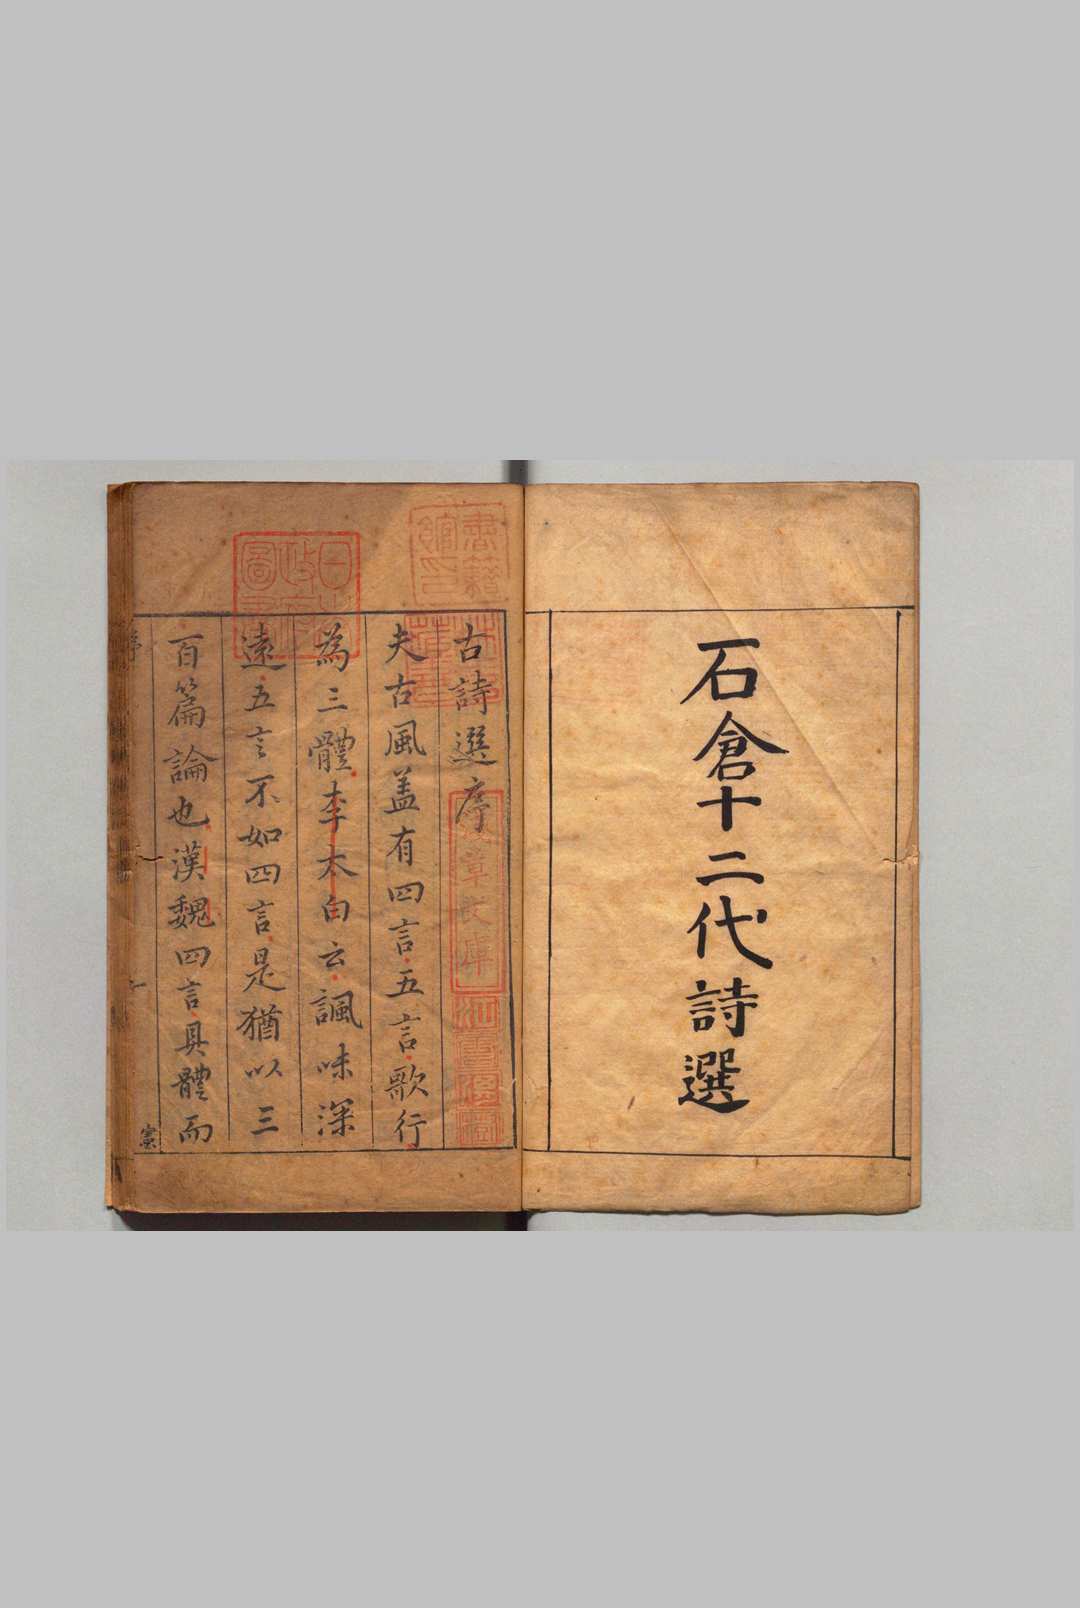 石倉十二代詩選
古詩選序
夫古風盖有四言五言歌行
為三體李太白云諷味深
遠五言不如四言是猶以三
百篇論也漢魏四言具體而
序
一